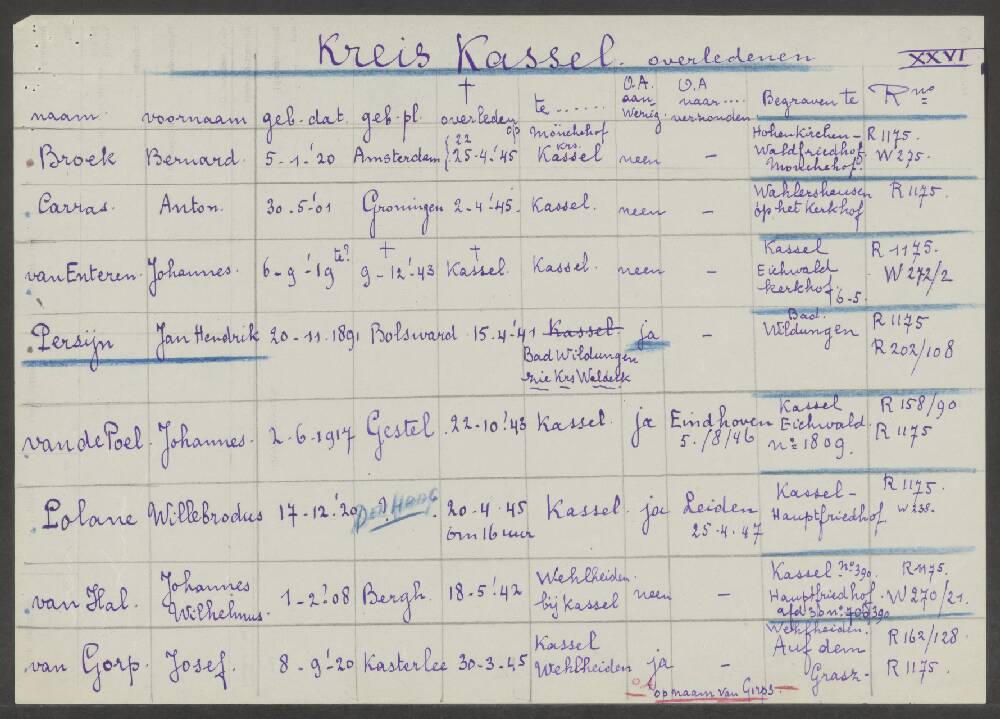 Kreis Kassel. overledenen XXVI
naam. voornaam geb. dat. geb. pl. † overleden te ...... O.A. aanwezig. O.A naar.... verzonden Begraven te R no
Broek Bernard. 5-1-'20 Amsterdam {22 op 25-4-'45 Mönchehof krs. Kassel neen – Hohenkirchen- Waldfriedhof Mönchehof. R 1175. W 275.
Carras. Anton. 30-5-'01 Groningen 2-4-'45. Kassel. neen – Wahlershausen op het Kerkhof R 1175.
van Enteren. Johannes. 6-9-'19 te? † 9-12-'43 † Kassel. Kassel. neen – Kassel Eichwald kerkhof. 6-5. R 1175. W 272/2
Persijn Jan Hendrik 20-11-1891 Bolsward 15-4-'41 Kassel Bad Wildungen zie Krs Waldeck ja – Bad. Wildungen R 1175 R 202/108
van de Poel. Johannes. 2-6-1917 Gestel. 22-10-'43 Kassel. ja Eindhoven 5./8/46 Kassel Eichwald no 1809. R 158/90. R 1175
Polane Willebrodus 17-12-'20 ? DEN HAAG 20-4-45 om 16 uur Kassel. ja Leiden 25-4-47 Kassel- Hauptfriedhof R 1175. W 238.
van Hal. Johannes Wilhelmus. 1-2-'08 Bergh. 18-5-'42 Wehlheiden. bij Kassel neen – Kassel. no 390. Hauptfriedhof afd 3b no 706/390 R 1175. W 270/21.
van Gorp. Josef. 8-9-'20 Kasterlee 30-3-45 Kassel Wehlheiden ja op naam van Girps. – Wehlheiden. Auf dem Grasz- R 162/128. R 1175.